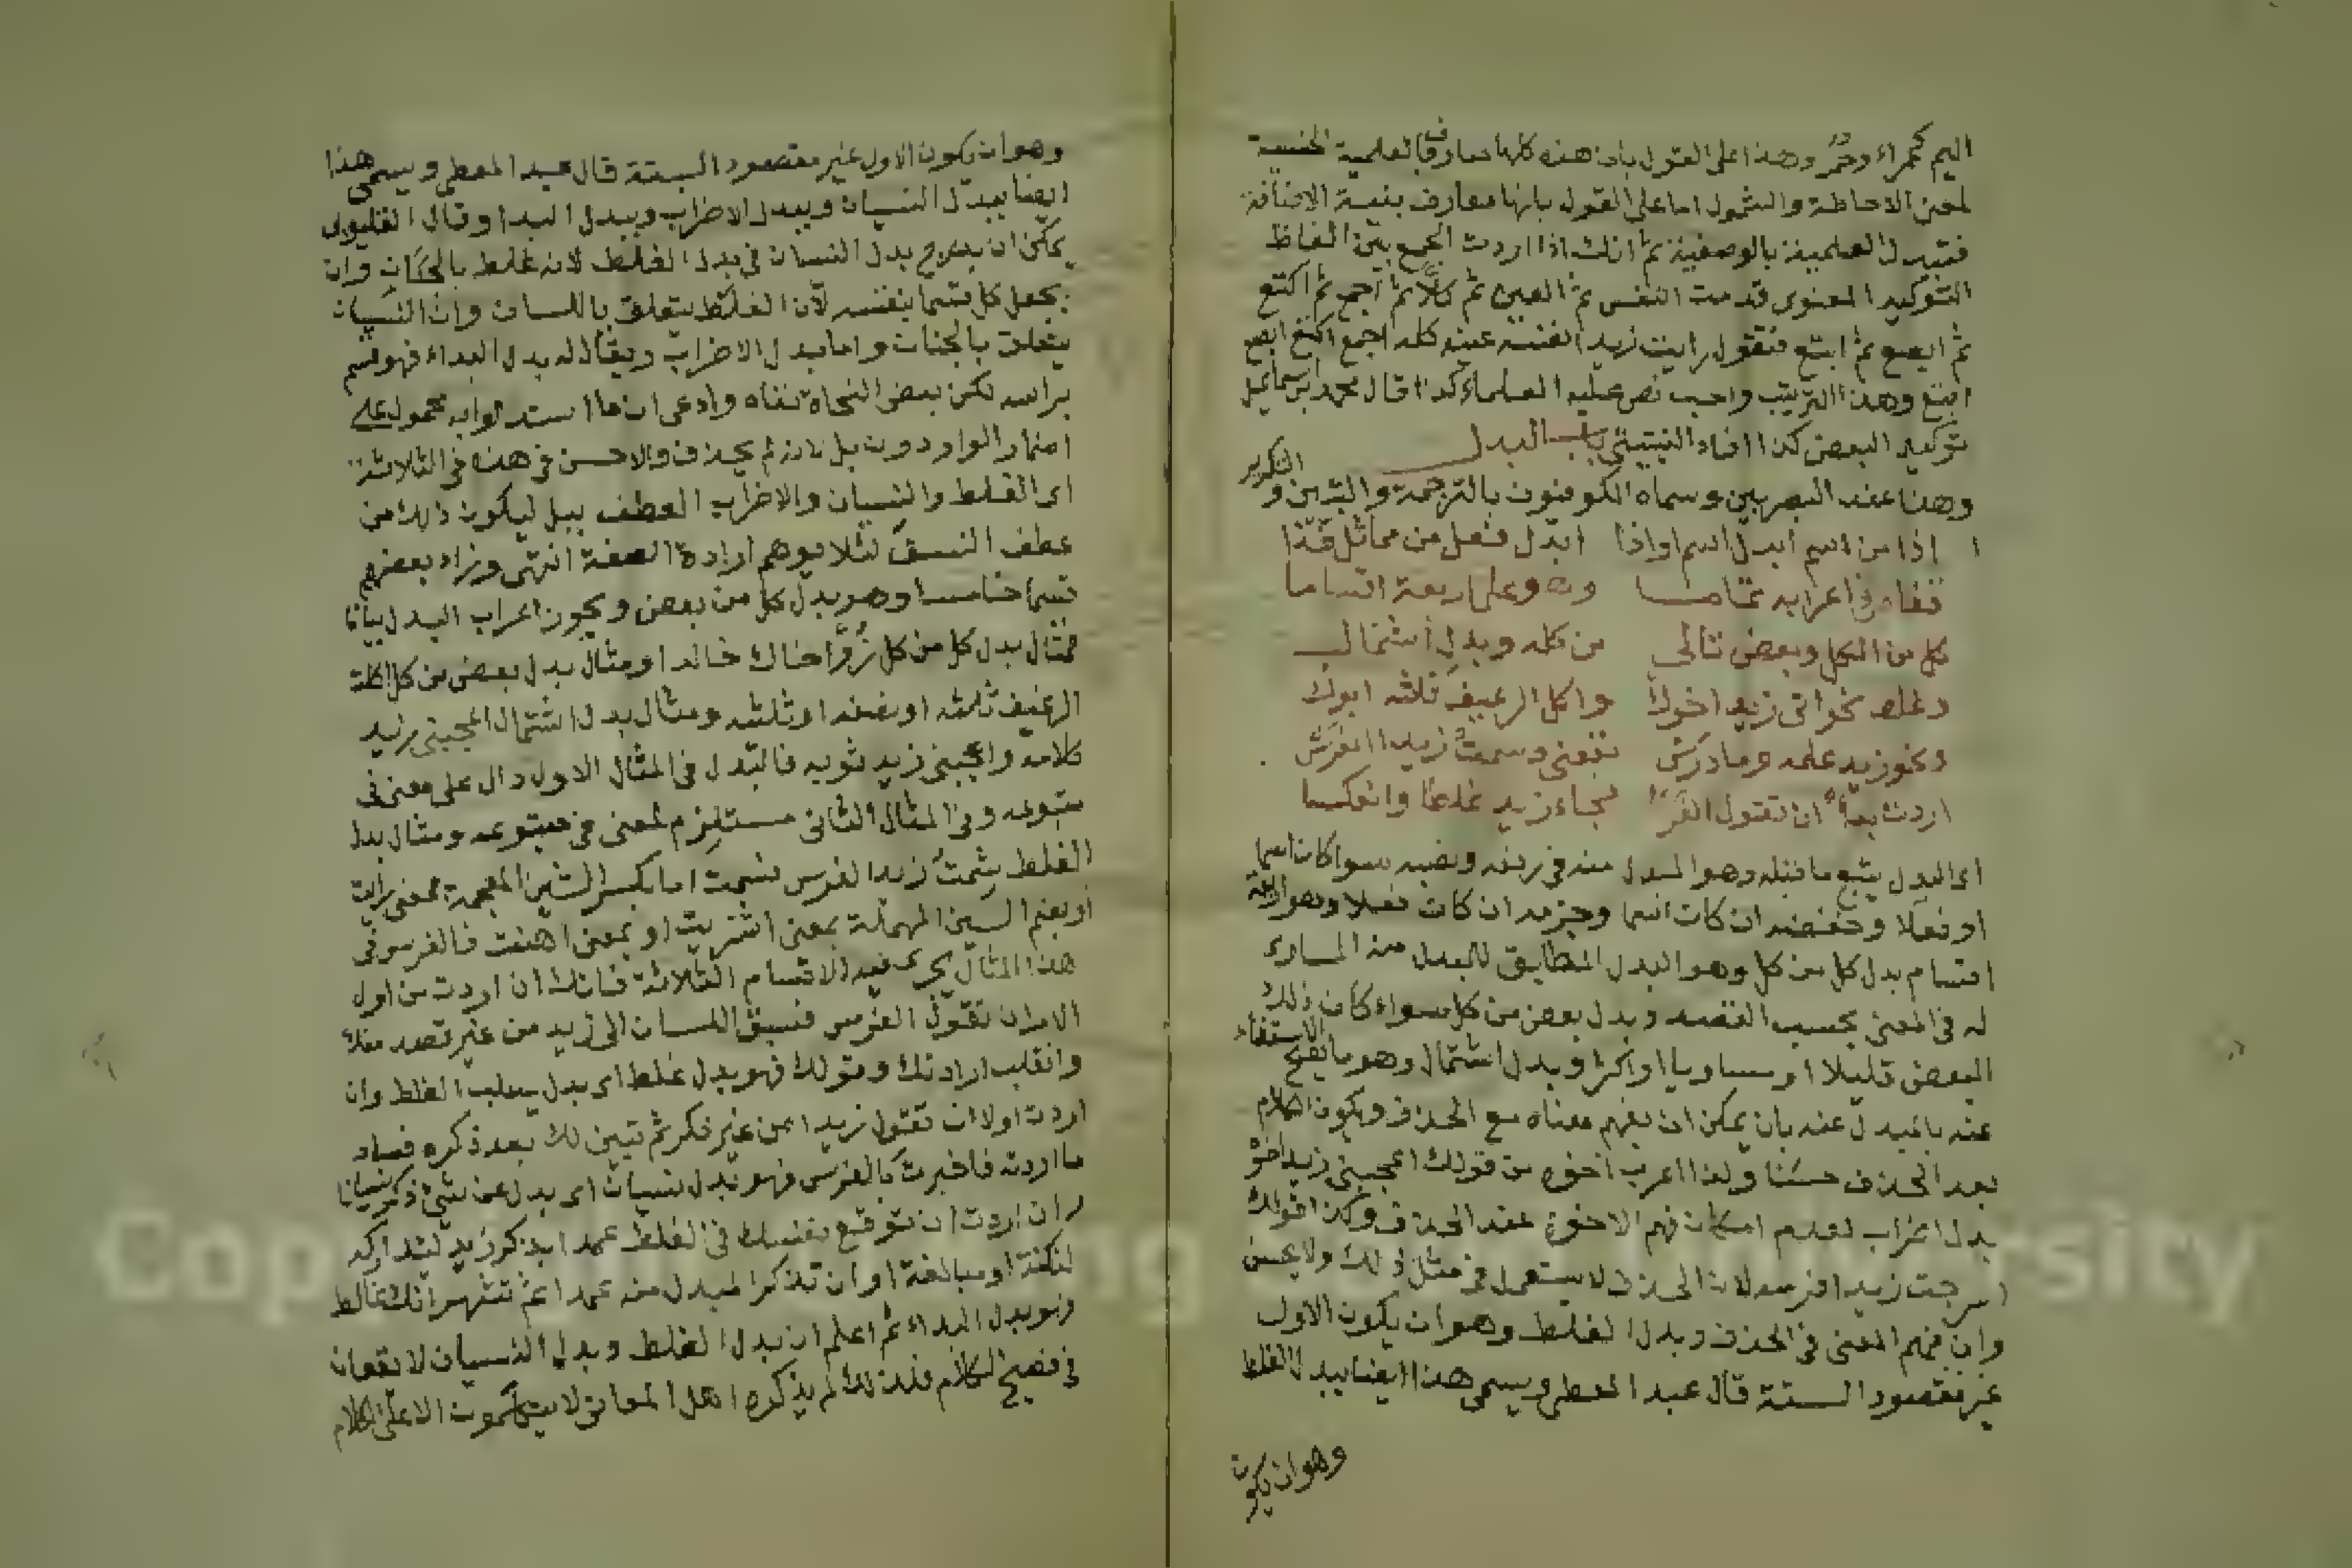 اليم كحمراء وحمر وهذا على القول بان هذه كلها معارف بالعلمية الجنسية
لمعنى الاحاطة والشمول اما على القول بانها معارف بنية الاضافة
فتبدل العلمية بالوصفية ثم انك اذا اردت الجمع بين الفاظ
التوكيد المعنوى قدمت النفس ثم العين ثم كلا ثم اجمع ثم اكتع
ثم ابصع ثم ابتع فتقول رايت زيدا نفسه عينه كله اجمع اكتع ابصع
ابتع وهذا الترتيب واجب نص عليه العلماء كذا قال محمد بن اسماعيل
توكيد البعض كذا افاده النبتيتى باب البدل
وهذا عند البصريين وسماه الكوفيون بالترجمة والتبيين والتكرير
اذا من اسم ابدل اسم او اذا ابدل فعل من مماثل فذا
فى اعرابه وهو على اربعة اقساما
كل من الكل وبعض تالى من كله وبدل اشتمال
وغلط نحو اتى زيد اخوك واكل الرغيف ثلثه ابوك
ونحو زيد علمه وما درس نفعنى وسمت زيدا الفرس
اردت بدأ ان تقول الفرسا فجاء زيد غلطا وانعكسا
اى البدل يتبع ما قبله وهو المبدل منه فى رفعه ونصبه سوا كان اسما
او فعلا وخفضه ان كان اسما وجزمه ان كان فعلا وهو اربعة
اقسام بدل كل من كل وهو البدل المطابق للمبدل منه المساوى
له فى المعنى بحسب القصد وبدل بعض من كل سواء كان ذلك
البعض قليلا او مساويا او اكثر وبدل اشتمال وهو ما يصح الاستغناء
عنه بالمبدل عنه بان يمكن ان يفهم معناه مع الحذف ويكون الكلام
بعد الحذف حسنا ولذا اعرب اخوه من قولك اعجبنى زيد اخوه
بدل اضراب لعدم امكان فهم الاخوة عند الحذف وكذا قولك
اسرجت زيدا فرسه لان الحذف لا يستعمل فى مثل ذلك ولا يحسن
وان فهم المعنى فى الحذف وبدل الغلط وهو ان يكون الاول
غير مقصود البتة قال عبد المعطى ويسمى هذا ايضا ببدل الغلط
وهو ان يكون
وهو ان يكون الاول غير مقصود البتة قال عبد المعطى ويسمى هذا
ايضا ببدل النسيان وببدل الاضراب وببدل البدا وقال القليوبى
يمكن ان يدرج بدل النسيان فى بدل الغلط لانه غلط بالجنان وان
يجعل كل قسما بنفسه لان الغلط يتعلق باللسان وان النسيان
يتعلق بالجنان واما بدل الاضراب ويقال له بدل البداء فهو قسم
براسه لكن بعض النحاة نفاه وادعى ان ما استدلوا به محمول على
اضمار الواو دون بل لانه لم يحذف والاحسن فى هذه فى الثلاثة
اى الغلط والنسيان والاضراب العطف ببل ليكون ذلك من
عطف النسق لئلا يوهم ارادة الصفة انتهى وزاد بعضهم
قسما خامسا وهو بدل كل من بعض ويجوز اعراب البدل بيانا
فمثال بدل كل من كل زر اخاك خالدا ومثال بدل بعض من كل اكلت
الرغيف ثلثه او نصفه او ثلثيه ومثال بدل اشتمال اعجبنى زيد
كلامه واعجبنى زيد ثوبه فالبدل فى المثال الاول دال على معنى فى
متبوعه وفى المثال الثانى مستلزم لمعنى فى متبوعه ومثال بدل
الغلط شمت زيدا الفرس فشمت اما بكسر الشين المعجمة بمعنى رايت
او بضم السين المهملة بمعنى اشتريت او بمعنى اهنت فالفرس فى
هذا المثال يجرى فيه الاقسام الثلاثة فانك ان اردت من اول
الامر ان تقول الفرس فسبق اللسان الى زيد من غير قصد منك
وانقلب ارادتك وقولك فهو بدل غلط اى بدل سببه الغلط وان
اردت اولا ان تقول زيدا من غير فكر ثم تبين لك بعد ذكره فساد
ما اردته فاخبرت بالفرس فهو بدل نسيان اى بدل عن شئ ذكر نسيانا
وان اردت ان توقع نفسك فى الغلط عمدا بذكر زيد لتداركه
لنكتة او مبالغة او ان تذكر المبدل منه عمدا ثم تشهر انك غالط
فهو بدل البداء ثم اعلم ان بدل الغلط وبدل النسيان لا يقعان
فى فصيح الكلام فلذلك لم يذكره اهل المعانى لا يتكلمون الا على الكلام